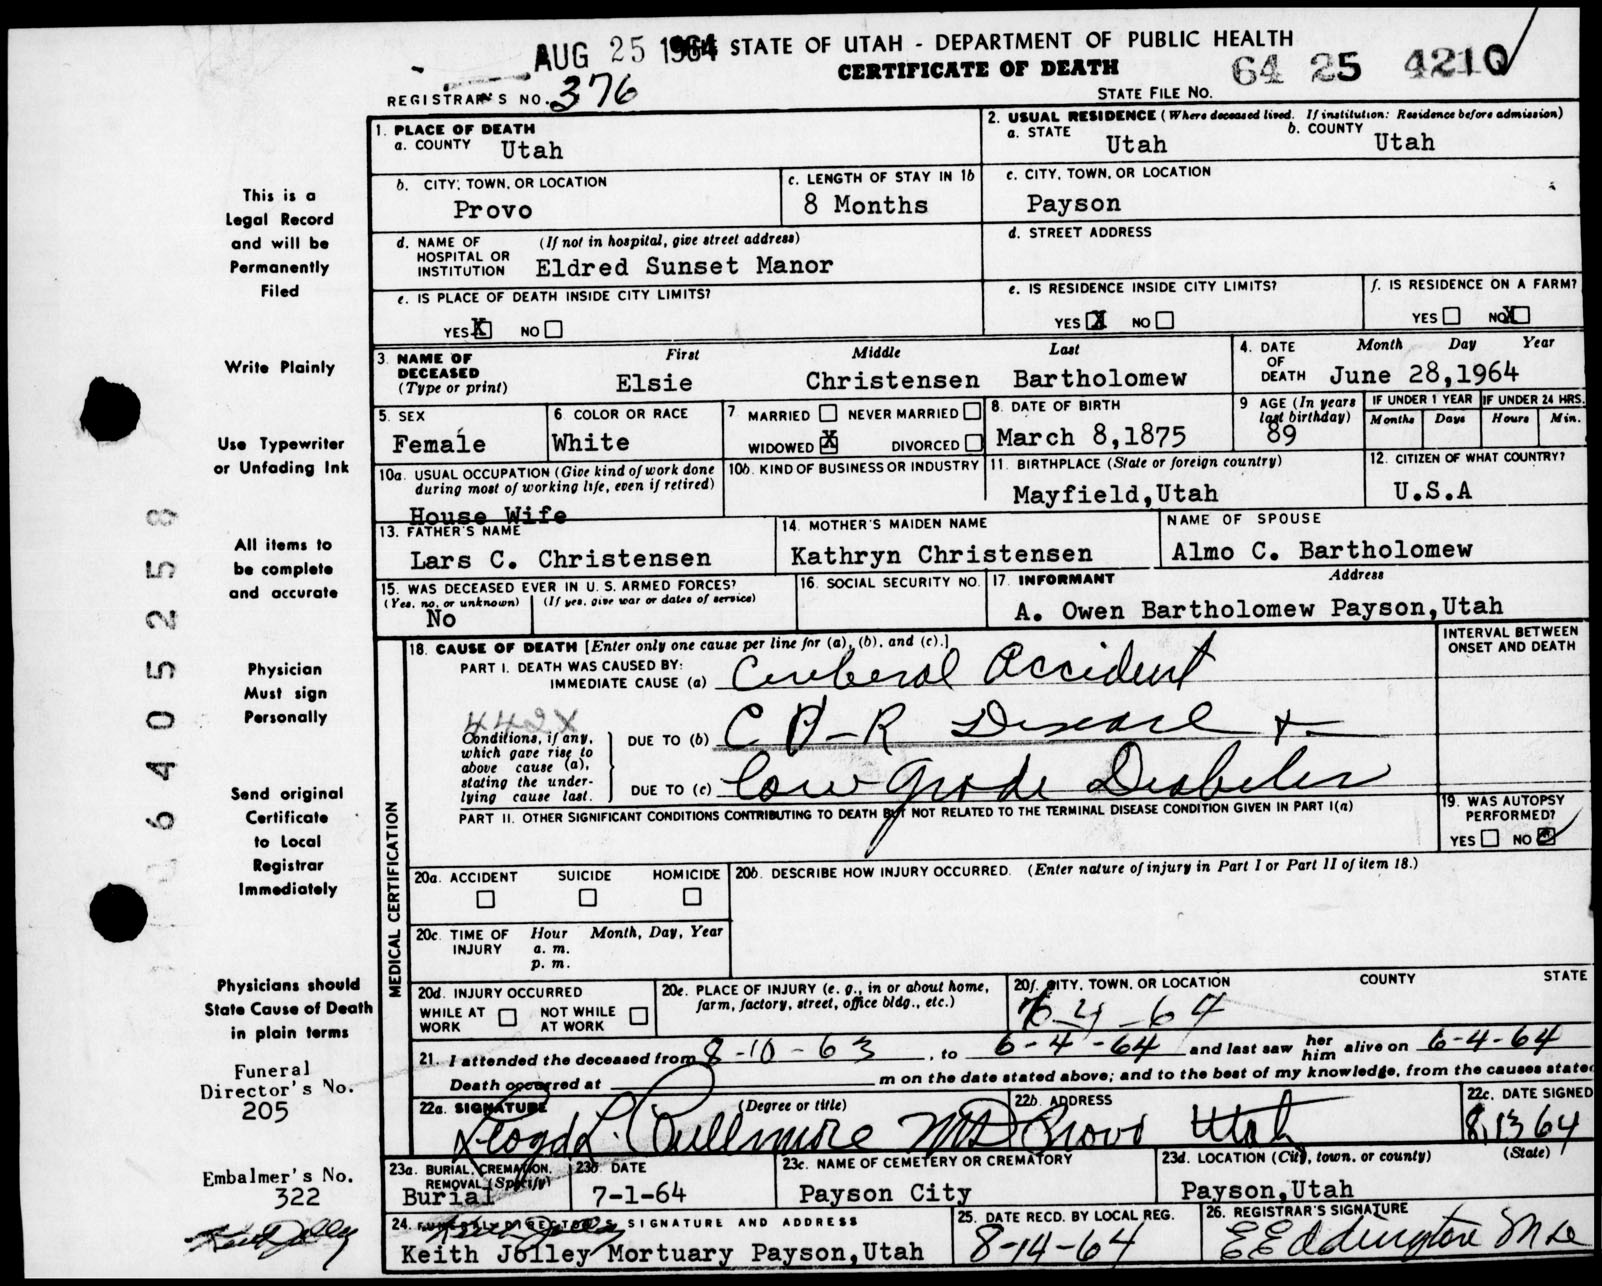 AUG 25 1964 STATE OF UTAH - DEPARTMENT OF PUBLIC HEALTH
CERTIFICATE OF DEATH
REGISTRAR'S NO. 376
STATE FILE NO. 64 25 4210
This is a
Legal Record
and will be
Permanently
Filed
Write Plainly
Use Typewriter
or Unfading Ink
All items to
be complete
and accurate
Physician
Must sign
Personally
Send original
Certificate
to Local
Registrar
Immediately
Physicians should
State Cause of Death
in plain terms
Funeral
Director's No.
205
Embalmer's No.
322
Keith Jolley
6405258
1. PLACE OF DEATH
a. COUNTY Utah
2. USUAL RESIDENCE (Where deceased lived. If institution: Residence before admission)
a. STATE Utah b. COUNTY Utah
b. CITY, TOWN, OR LOCATION
Provo
c. LENGTH OF STAY IN 1b
8 Months
c. CITY, TOWN, OR LOCATION
Payson
d. NAME OF HOSPITAL OR INSTITUTION (If not in hospital, give street address)
Eldred Sunset Manor
d. STREET ADDRESS
e. IS PLACE OF DEATH INSIDE CITY LIMITS?
YES X NO
e. IS RESIDENCE INSIDE CITY LIMITS?
YES X NO
f. IS RESIDENCE ON A FARM?
YES NO X
3. NAME OF DECEASED (Type or print)
First Middle Last
Elsie Christensen Bartholomew
4. DATE OF DEATH Month Day Year
June 28,1964
5. SEX
Female
6. COLOR OR RACE
White
7. MARRIED NEVER MARRIED
WIDOWED X DIVORCED
8. DATE OF BIRTH
March 8,1875
9. AGE (In years last birthday)
89
IF UNDER 1 YEAR
Months Days
IF UNDER 24 HRS.
Hours Min.
10a. USUAL OCCUPATION (Give kind of work done during most of working life, even if retired)
House Wife
10b. KIND OF BUSINESS OR INDUSTRY
11. BIRTHPLACE (State or foreign country)
Mayfield,Utah
12. CITIZEN OF WHAT COUNTRY?
U.S.A
13. FATHER'S NAME
Lars C. Christensen
14. MOTHER'S MAIDEN NAME
Kathryn Christensen
NAME OF SPOUSE
Almo C. Bartholomew
15. WAS DECEASED EVER IN U. S. ARMED FORCES?
(Yes, no, or unknown) (If yes, give war or dates of service)
No
16. SOCIAL SECURITY NO.
17. INFORMANT Address
A. Owen Bartholomew Payson,Utah
MEDICAL CERTIFICATION
18. CAUSE OF DEATH [Enter only one cause per line for (a), (b), and (c).]
INTERVAL BETWEEN ONSET AND DEATH
PART I. DEATH WAS CAUSED BY:
IMMEDIATE CAUSE (a) Cerebral Accident
442X
Conditions, if any, which gave rise to above cause (a), stating the underlying cause last.
DUE TO (b) C V-R Disease +
DUE TO (c) Low grade Diabetes
PART II. OTHER SIGNIFICANT CONDITIONS CONTRIBUTING TO DEATH BUT NOT RELATED TO THE TERMINAL DISEASE CONDITION GIVEN IN PART I(a)
19. WAS AUTOPSY PERFORMED?
YES NO X
20a. ACCIDENT SUICIDE HOMICIDE
20b. DESCRIBE HOW INJURY OCCURRED. (Enter nature of injury in Part I or Part II of item 18.)
20c. TIME OF INJURY Hour Month, Day, Year
a. m.
p. m.
20d. INJURY OCCURRED
WHILE AT WORK NOT WHILE AT WORK
20e. PLACE OF INJURY (e. g., in or about home, farm, factory, street, office bldg., etc.)
20f. CITY, TOWN, OR LOCATION COUNTY STATE
6-4-64
21. I attended the deceased from 8-10-63, to 6-4-64 and last saw her him alive on 6-4-64
Death occurred at m on the date stated above; and to the best of my knowledge, from the causes stated
22a. SIGNATURE (Degree or title)
Lloyd L. Cullimore MD
22b. ADDRESS
Provo Utah
22c. DATE SIGNED
8,13 64
23a. BURIAL, CREMATION, REMOVAL (Specify)
Burial
23b DATE
7-1-64
23c. NAME OF CEMETERY OR CREMATORY
Payson City
23d. LOCATION (City, town, or county) (State)
Payson,Utah
24. FUNERAL DIRECTOR'S SIGNATURE AND ADDRESS
Keith Jolley Mortuary Payson,Utah
25. DATE RECD. BY LOCAL REG.
8-14-64
26. REGISTRAR'S SIGNATURE